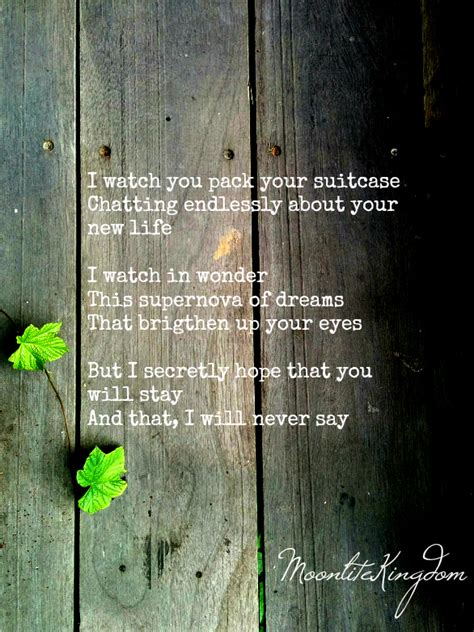 I watch you pack your suitcase
Chatting endlessly about your
new life
I watch in wonder
This supernova of dreams
That brigthen up your eyes
But I secretly hope that you
will stay
And that, I will never say
MoonliteKingdom